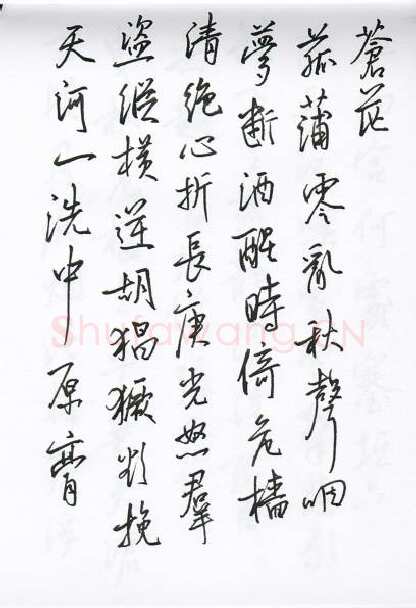 蒼茫
菰蒲零亂秋聲咽
夢断酒醒時倚危檣
清绝心折長庚光怒羣
盗縱横逆胡猖獗欲挽
天河一洗中原膏
Shufawang.CN